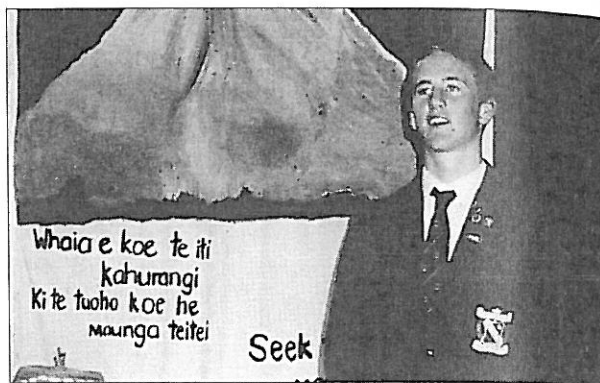 Whaia e koe te iti
kahurangi
Ki te tuoho koe he
maunga teitei
Seek